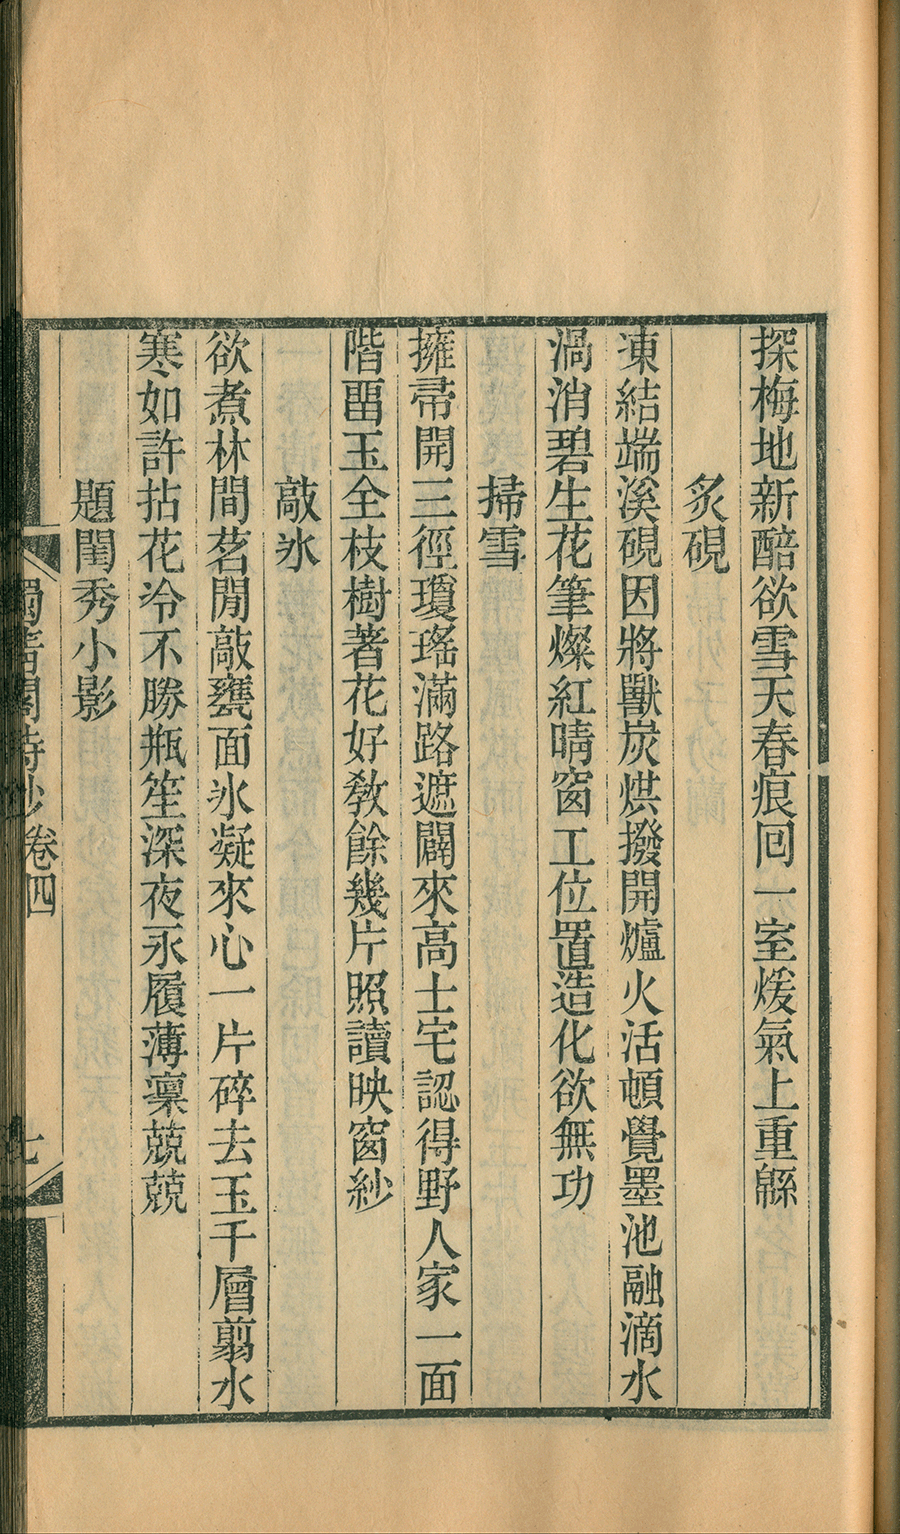 探梅地新醅欲雪天春痕回一室煖氣上重緜
炙硯
凍結端溪硯因將獸炭烘撥開爐火活頓覺墨池融滴水
渦消碧生花筆燦紅晴窗工位置造化欲無功
掃雪
擁帚開三徑瓊瑤滿路遮闢來高士宅認得野人家一面
階畱玉全枝樹著花好敎餘幾片照讀映窗紗
敲冰
欲煮林間茗閒敲甕面冰凝來心一片碎去玉千層翦水
寒如許拈花冷不勝甁笙深夜永履薄凜兢兢
題閨秀小影
閣詩鈔卷四
七